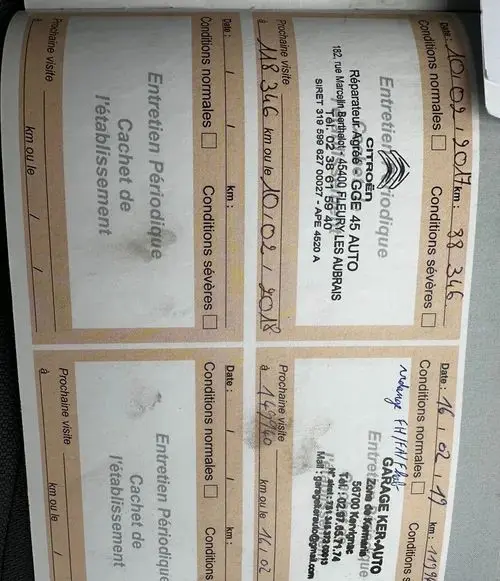 Date : 10 / 02 / 2017 km : 88 346
Conditions normales Conditions sévères
Entretien Périodique
CITROËN
Réparateur Agréé - GGE 45 AUTO
182, rue Marcelin Berthelot - 45400 FLEURY LES AUBRAIS
Tél. 02 38 61 59 40
SIRET 319 599 627 00027 - APE 4520 A
Prochaine visite
à 118 346 km ou le 10 / 02 / 2018
Date : / / km :
Conditions normales Conditions sévères
Entretien Périodique
Cachet de
l'établissement
Prochaine visite
à km ou le / /
Date : 16 / 02 / 19 km :
Conditions normales Conditions s
Vidange FH/FA/
Entret
GARAGE KER-AUTO
Zone de
56700 Kervignac
Prochaine visite
à km ou le 16 / 02
Date : / / km :
Conditions normales Conditions
Entretien Périodique
Cachet de
l'établissement
Prochaine visite
à km ou le /